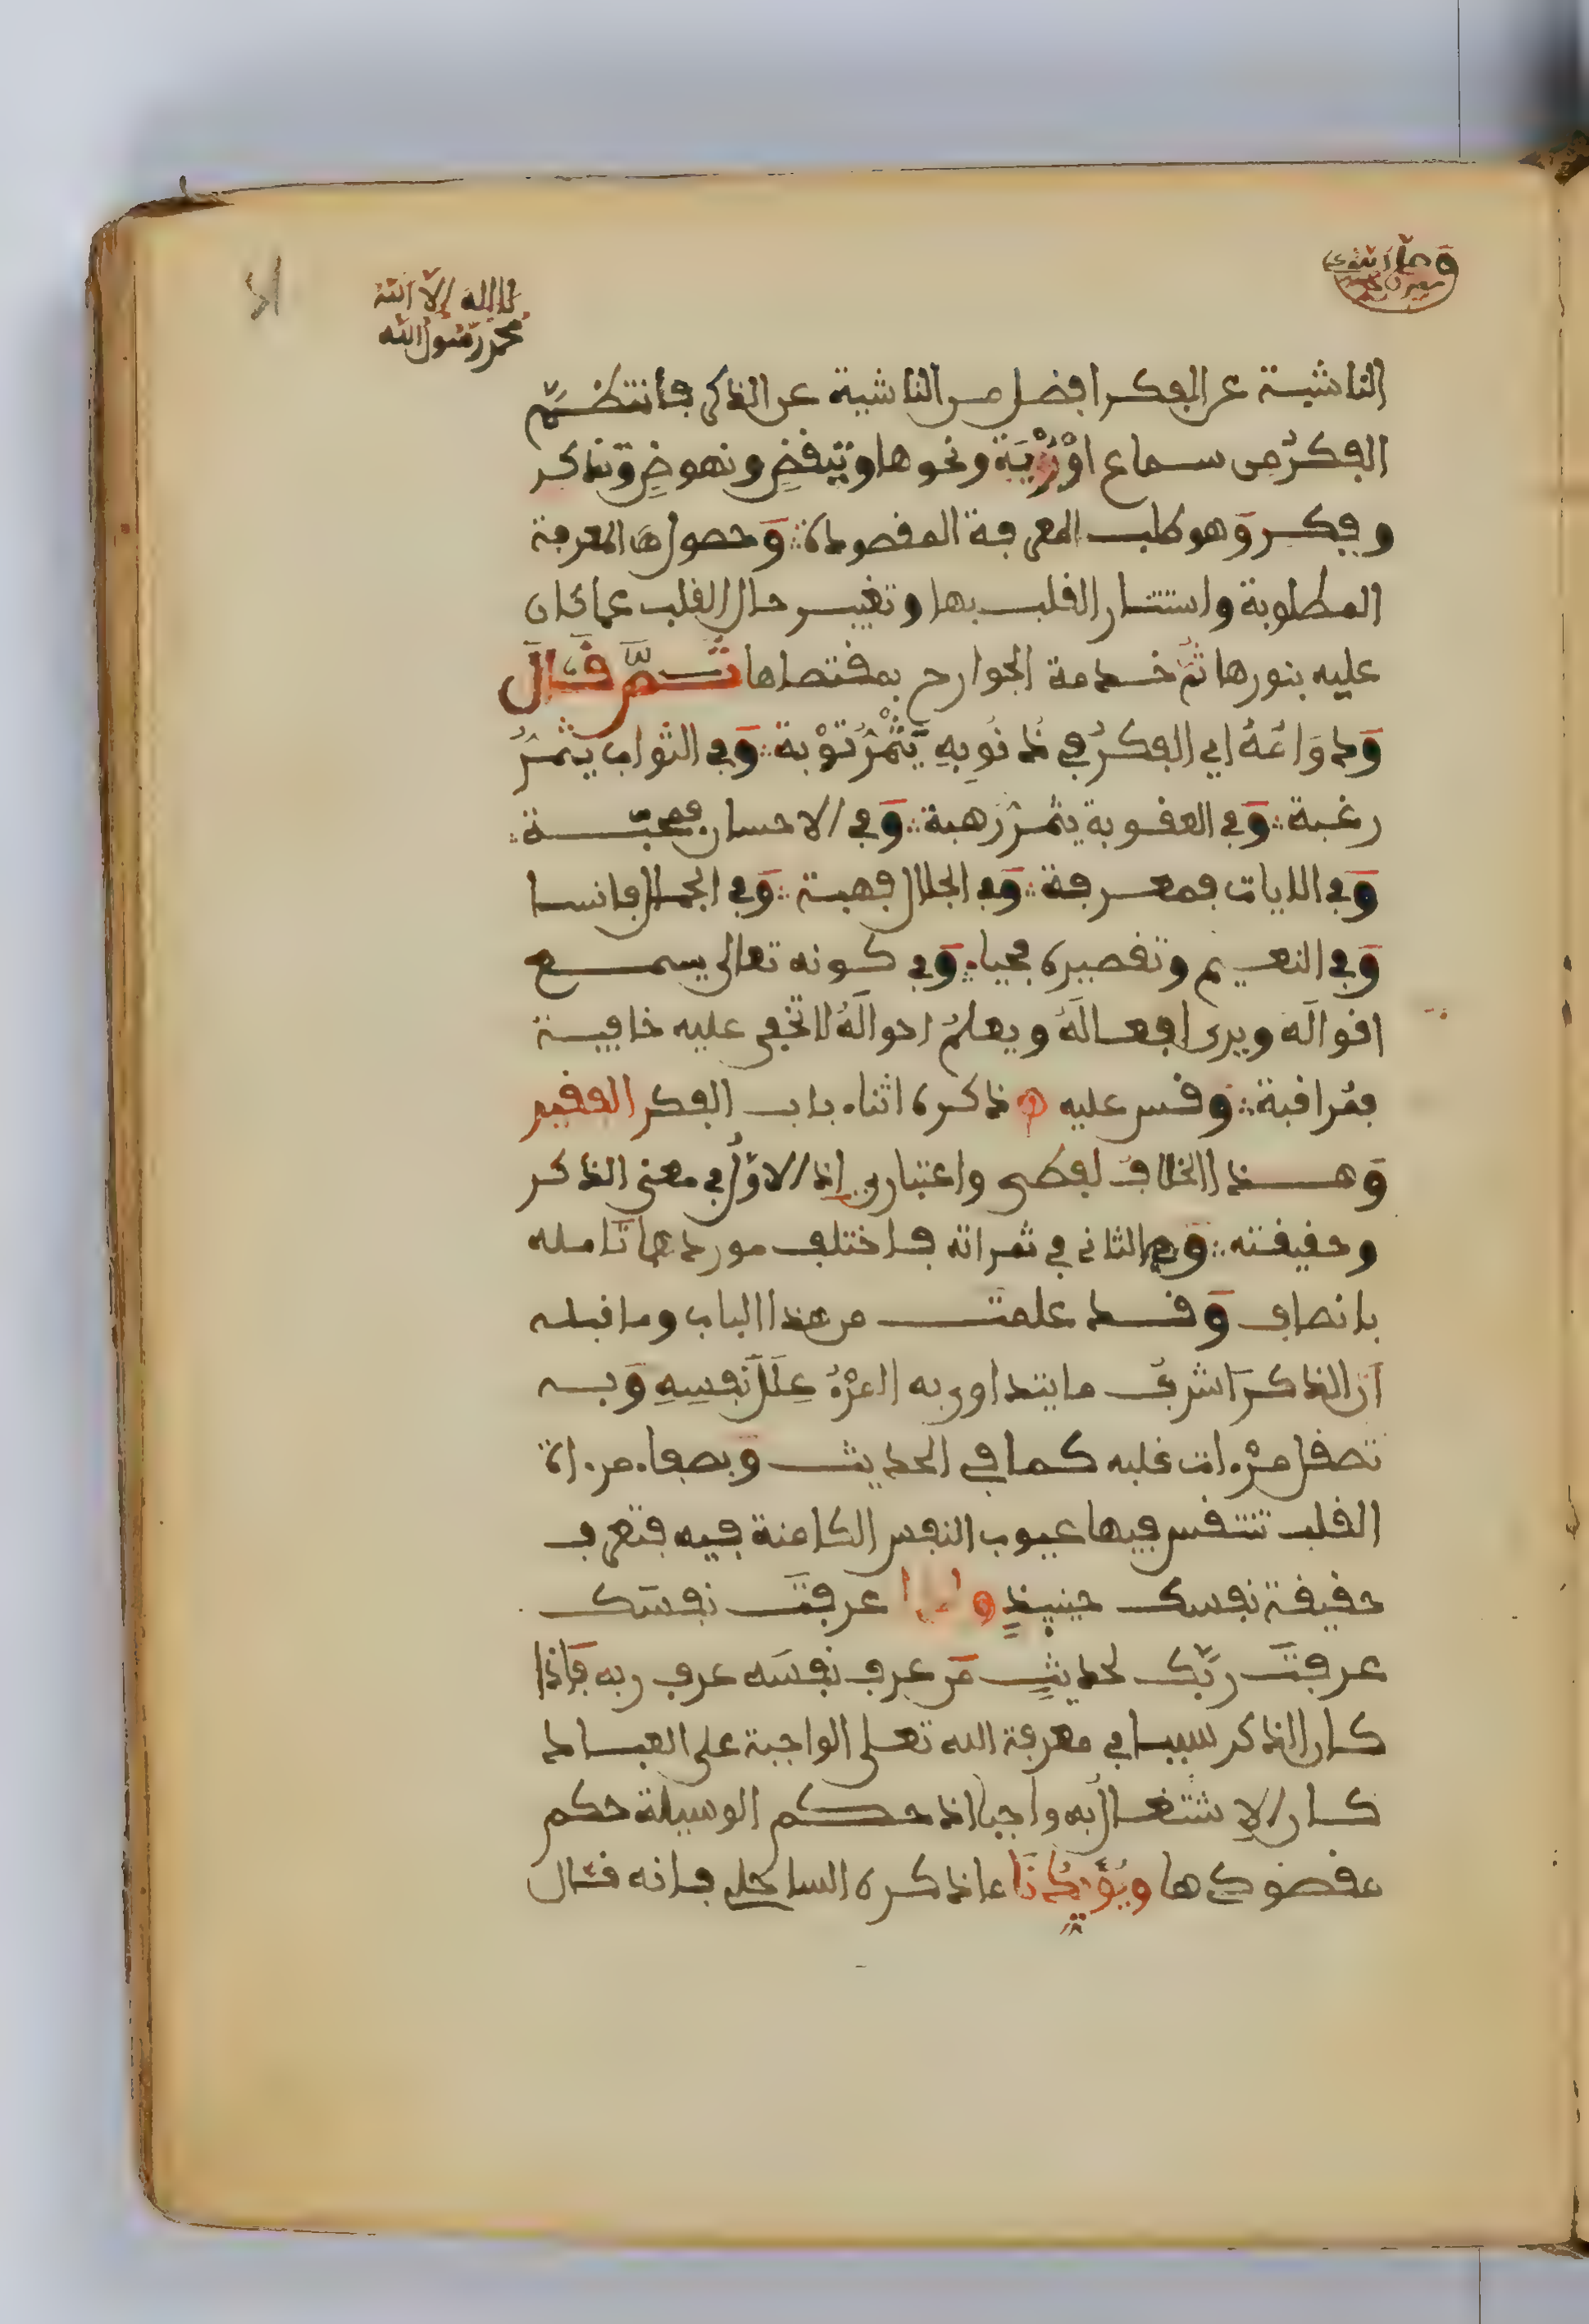 لا إله إلا الله
محمد رسول الله
الناشية عن الفكر افضل من الناشية عن الذكر فانتظم
الفكرُ من سماع اوْ رُؤْيَة ونحوها وتيقظٍ ونهوضٍ وتذكر
وفكر وَهو طلب المعرفة المقصودة وَحصول هَا المعرفة
المطلوبة واستنار القلب بها وتغير حال القلب عما كان
عليه بنورها ثمَّ خدمة الجوارح بمقتضاها ثمَّ قَالَ
وَدوَاعُهُ اي الفكرُ في ذنُوبِهِ يُثْمرُ تَوْبة وَفي الثواب يثمرُ
رغبة وَفي العقوبة يثمرُ رَهبة وَفي الاحسان فمحبّة
وَفي الايات فمعرفة وَفي الجلال فهيبة وَفي الجمال فانسا
وَفي النعيم وتقصيره فحياء وَفي كونه تعالى يسمع
اقوالَه ويرى افعالَهُ ويعلمُ احوالَهُ لا تخفى عليه خافية
فمُراقبة وقس عليه ذكره اثناء باب الفكر الفقير
وَهذا الخلاف لفظي واعتباري إذ الاوّلُ في معنى الذكر
وحقيقته وَفي الثاني في ثمراته فاختلف موردهما تأمله
بانصاف وَقد علمت من هذا الباب وما قبله
أن الذكرَ اشرفُ ما يتداوى به المرْءُ عِلَلَ نَفسِهِ وَبه
تصقل مرْءات قلبه كما في الحديث وَبصفاء مرءاة
القلب تنتقس فيها عيوب النفس الكامنة فيه فتعرف
حقيقة نفسك حينيذٍ عرفتَ نفسَك
عرفتَ ربَّك لحديثِ مَن عرف نفسَه عرف ربه فَإذا
كان الذكر سببا في معرفة الله تعلى الواجبة على العباد
كان الاشتغالُ به واجبا اذ حكم الوسيلة حكم
مقصودها ويُؤَيدُنَا ما ذكره الساحلي فانه قال